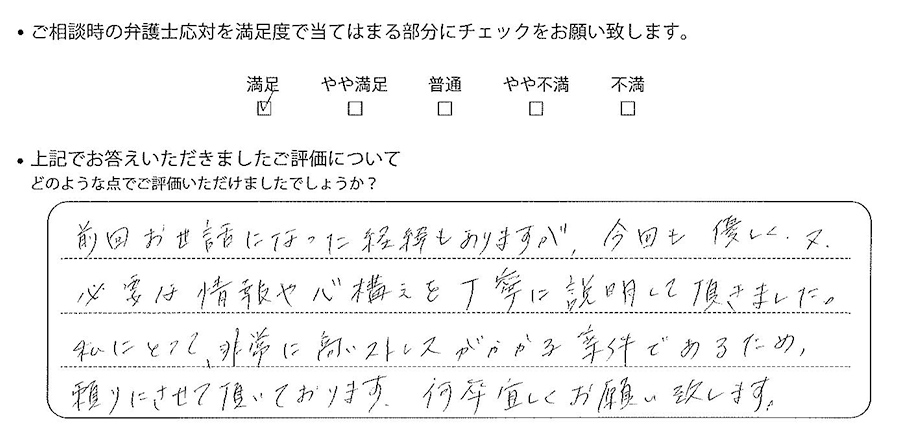 ・ご相談時の弁護士応対を満足度で当てはまる部分にチェックをお願い致します。
満足 やや満足 普通 やや不満 不満
・上記でお答えいただきましたご評価について
どのような点でご評価いただけましたでしょうか？
前回お世話になった経緯もありますが、今回も優しく、又、
必要な情報や心構えを丁寧に説明して頂きました。
私にとって、非常に高いストレスがかかる案件であるため、
頼りにさせて頂いております。何卒宜しくお願い致します。